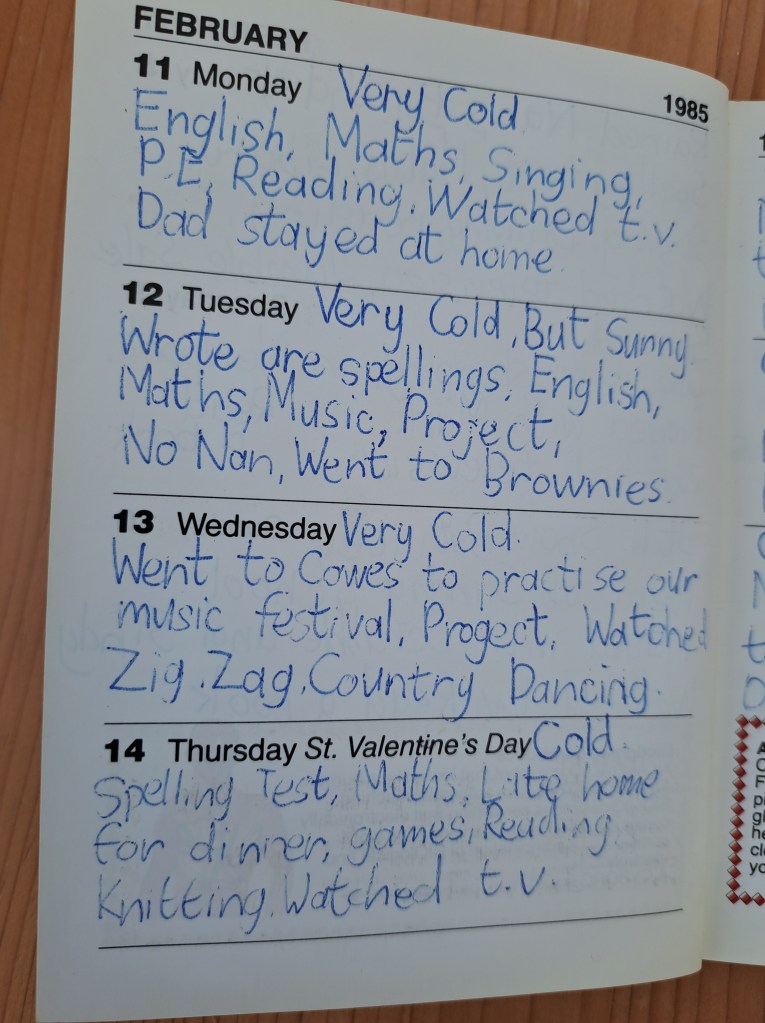 FEBRUARY
1985
11 Monday Very Cold
English, Maths, Singing,
P.E, Reading. Watched t.v.
Dad stayed at home.
12 Tuesday Very Cold, But Sunny.
Wrote are spellings, English,
Maths, Music, Project,
No Nan, Went to Brownies.
13 Wednesday Very Cold.
Went to Cowes to practise our
music festival, Progect, Watched
Zig.Zag, Country Dancing.
14 Thursday St. Valentine's Day Cold.
Spelling Test, Maths, Late home
for dinner, games, Reading,
Knitting, Watched t.v.